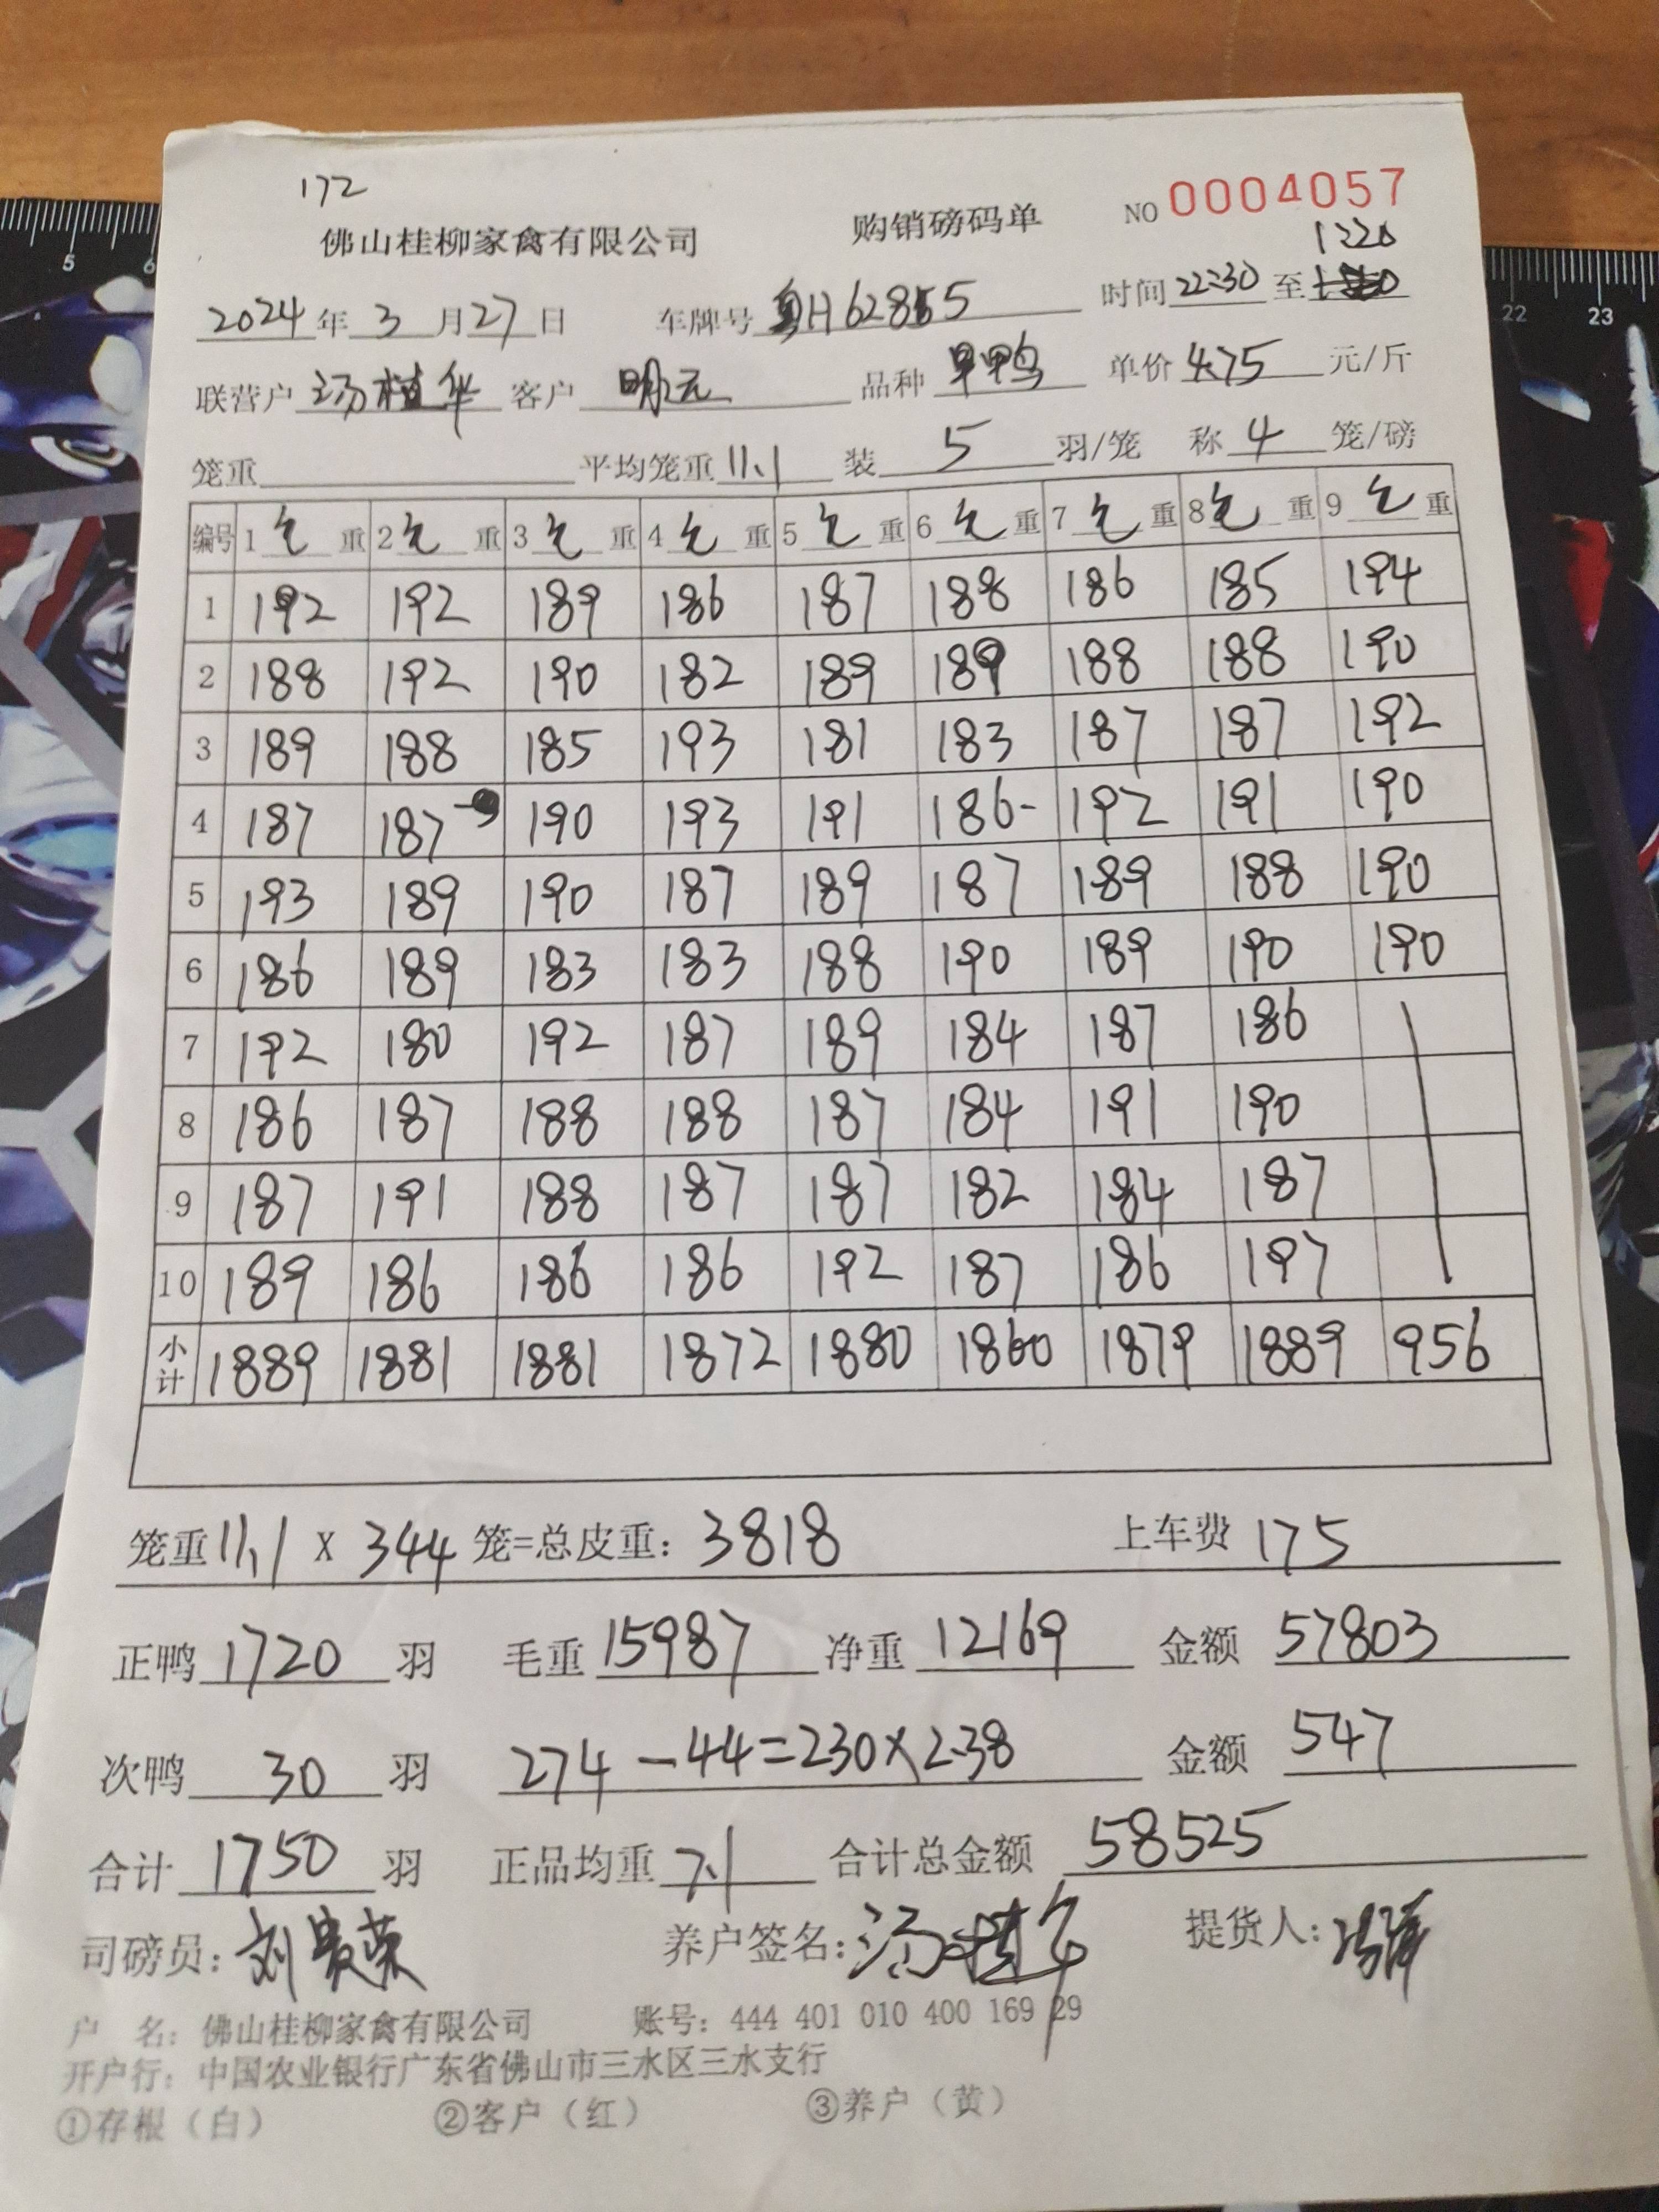 172
佛山桂柳家禽有限公司 购销磅码单 NO 0004057
1220
2024年3月27日 车牌号 粤H62855 时间 22:30 至
联营户 汤植华 客户 明元 品种 单价 4.75 元/斤
笼重 平均笼重 11.1 装 5 羽/笼 称 4 笼/磅
编号 1 毛 重 2 毛 重 3 毛 重 4 毛 重 5 毛 重 6 毛 重 7 毛 重 8 毛 重 9 毛 重
1 192 192 189 186 187 188 186 185 194
2 188 192 190 182 189 189 188 188 190
3 189 188 185 193 181 183 187 187 192
4 187 187 190 193 191 186- 192 191 190
5 193 189 190 187 189 187 189 188 190
6 186 189 183 183 188 190 189 190 190
7 192 180 192 187 189 184 187 186
8 186 187 188 188 187 184 191 190
9 187 191 188 187 187 182 184 187
10 189 186 186 186 192 187 186 197
小计 1889 1881 1881 1872 1880 1860 1879 1889 956
笼重 11.1 X 344 笼=总皮重: 3818 上车费 175
正鸭 1720 羽 毛重 15987 净重 12169 金额 57803
次鸭 30 羽 274-44=230×2.38 金额 547
合计 1750 羽 正品均重 7.1 合计总金额 58525
司磅员: 刘贵荣 养户签名: 汤植华 提货人:
户 名: 佛山桂柳家禽有限公司 账号: 444 401 010 400 169 29
开户行: 中国农业银行广东省佛山市三水区三水支行
①存根（白） ②客户（红） ③养户（黄）
5 6 22 23